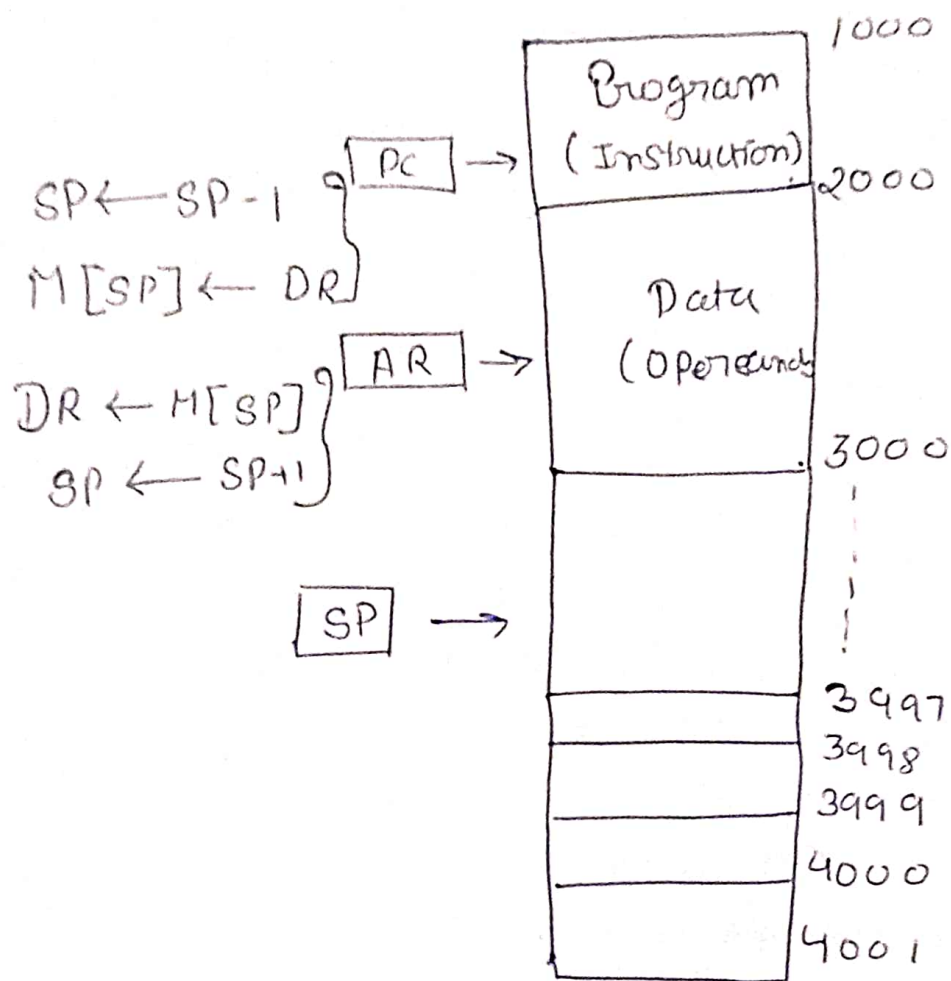 1000
Program
(Instruction)
PC →
2000
SP ← SP-1
M[SP] ← DR
Data
(Operands
AR →
DR ← M[SP]
SP ← SP+1
3000
SP →
3997
3998
3999
4000
4001